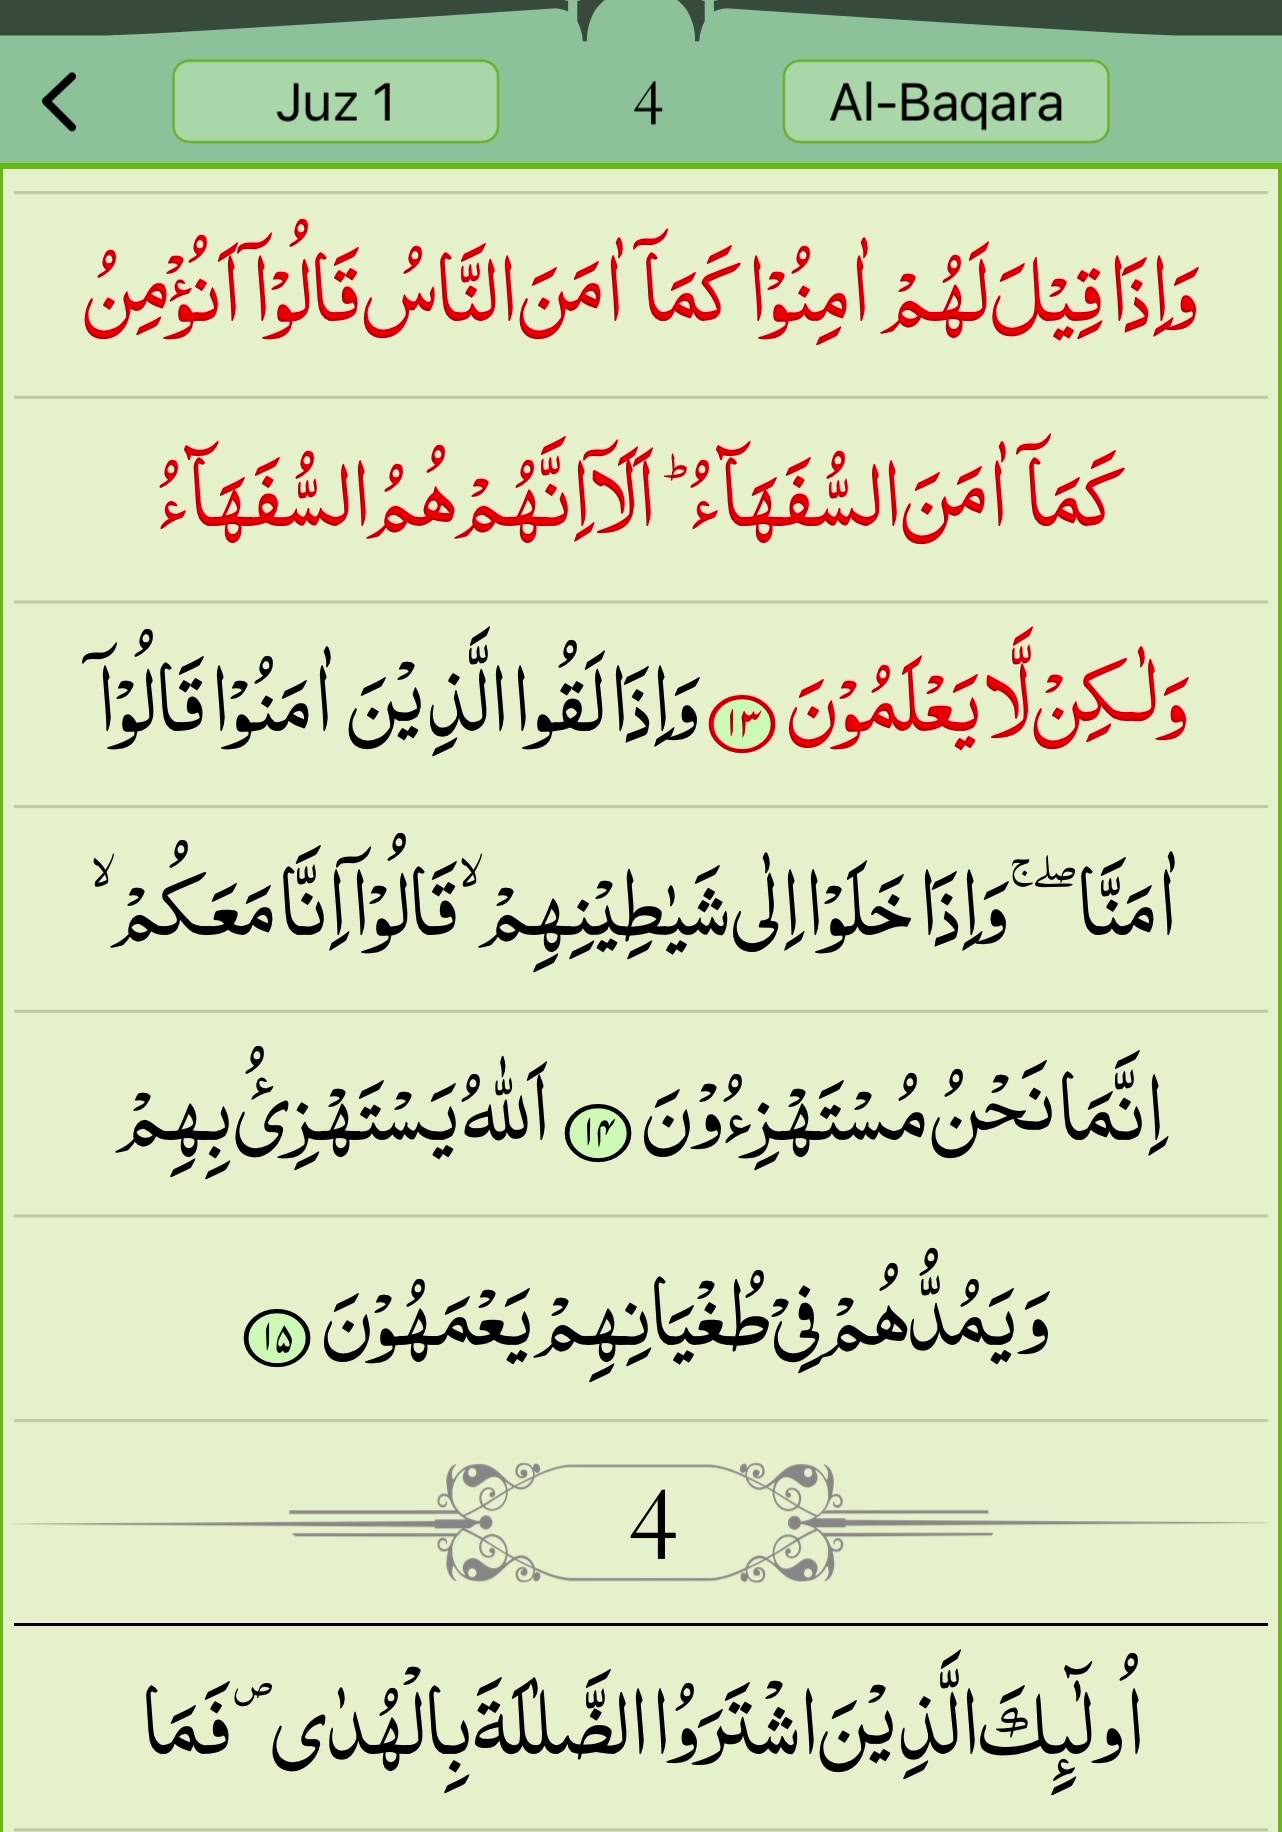 Juz 1 4 Al-Baqara
وَاِذَا قِيْلَ لَهُمْ اٰمِنُوْا كَمَاۤ اٰمَنَ النَّاسُ قَالُوْۤا اَنُؤْمِنُ
كَمَاۤ اٰمَنَ السُّفَهَآءُ ؕ اَلَاۤ اِنَّهُمْ هُمُ السُّفَهَآءُ
وَلٰـكِنْ لَّا يَعْلَمُوْنَ ۱۳ وَاِذَا لَقُوا الَّذِيْنَ اٰمَنُوْا قَالُوْاۤ
اٰمَنَّا ۖۚ وَاِذَا خَلَوْا اِلٰى شَيٰطِيْنِهِمْ ۙ قَالُوْاۤ اِنَّا مَعَكُمْ ۙ
اِنَّمَا نَحْنُ مُسْتَهْزِءُوْنَ ۱۴ اَللّٰهُ يَسْتَهْزِئُ بِهِمْ
وَيَمُدُّهُمْ فِىْ طُغْيَانِهِمْ يَعْمَهُوْنَ ۱۵
4
اُولٰٓٮِٕكَ الَّذِيْنَ اشْتَرَوُا الضَّلٰلَةَ بِالْهُدٰى ۖ فَمَا